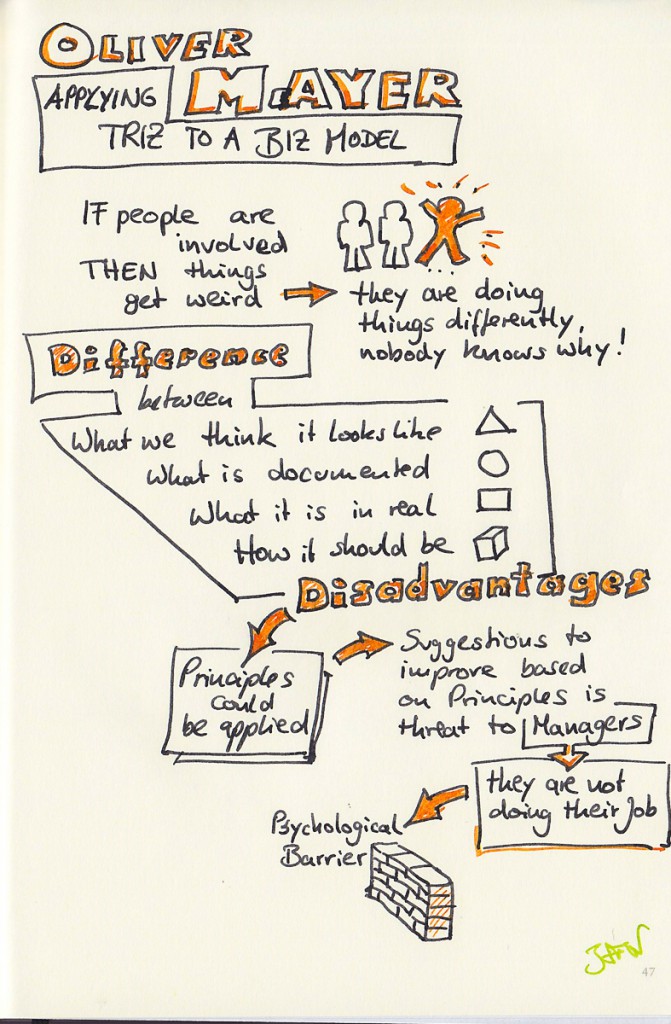 OLIVER
MAYER
APPLYING
TRIZ TO A BIZ MODEL
IF people are
involved
THEN things
get weird
...
they are doing
things differently,
nobody knows why!
Difference
between
What we think it looks like
What is documented
What it is in real
How it should be
Disadvantages
Principles
could
be applied
Suggestions to
improve based
on Principles is
threat to Managers
they are not
doing their job
Psychological
Barrier
47